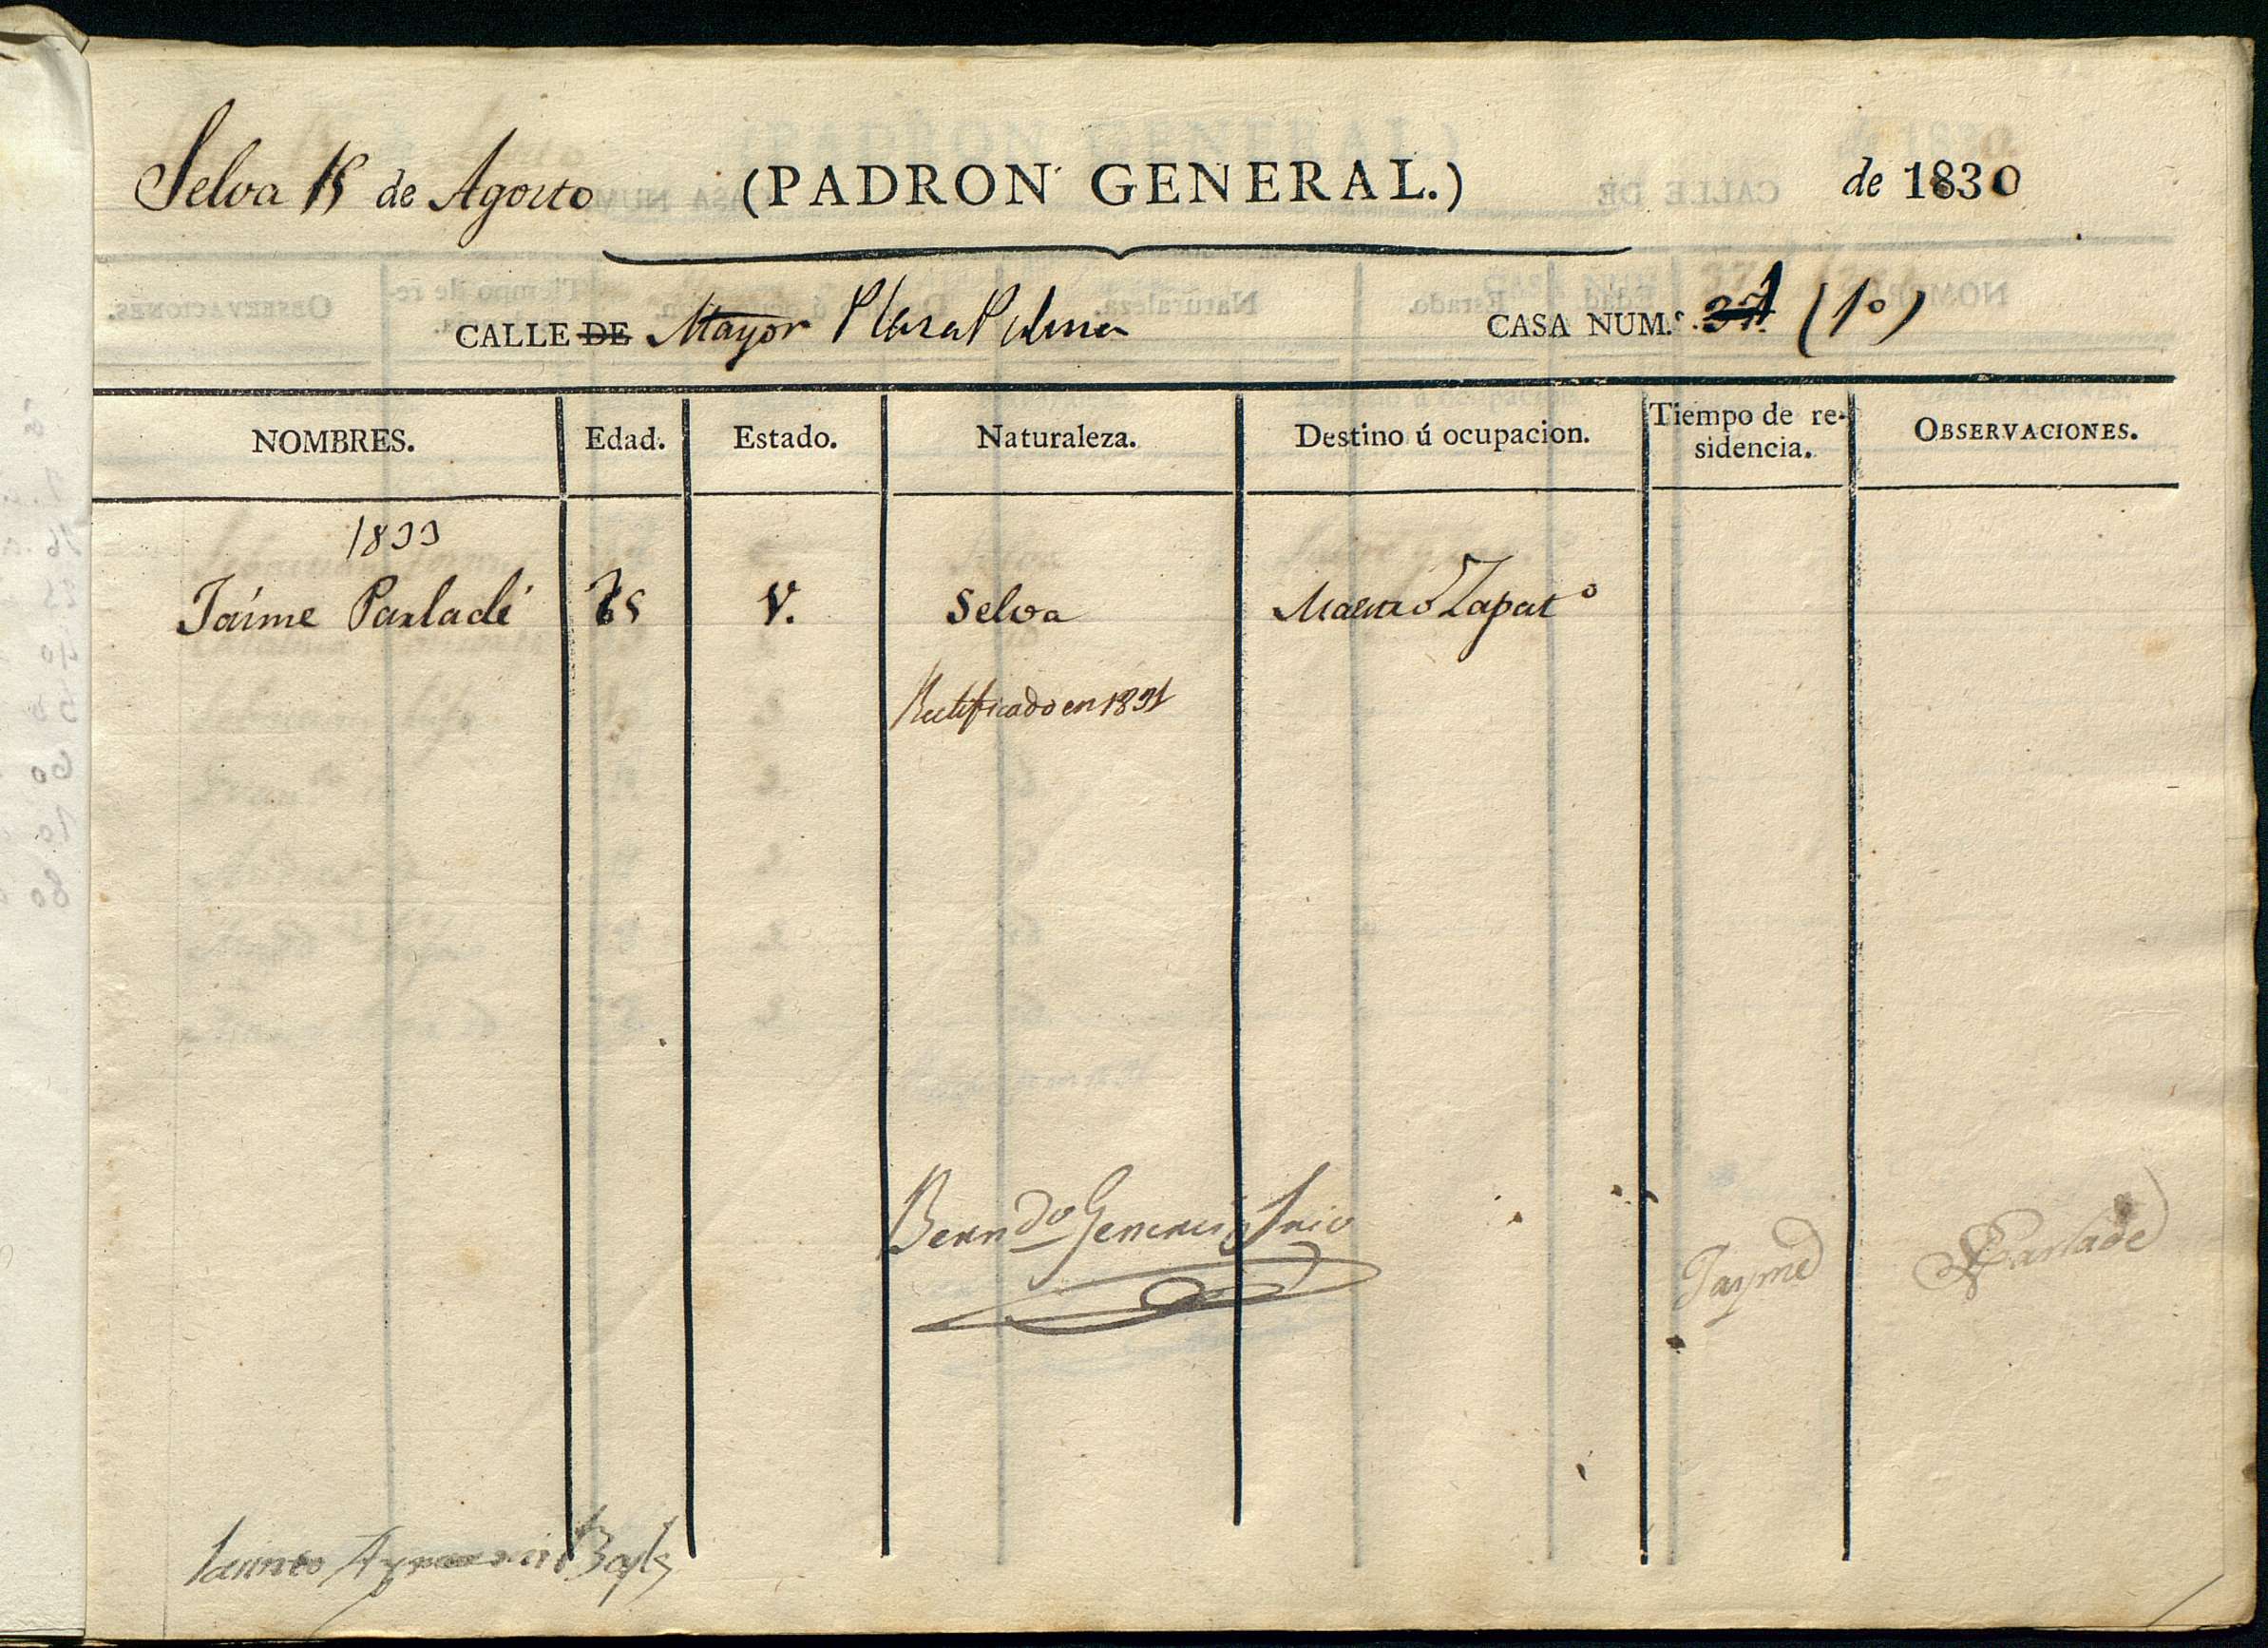 Selva 15 de Agosto (PADRON GENERAL.) de 1830
CALLE DE Mayor Plaza CASA NUM.º (1º)
NOMBRES. Edad. Estado. Naturaleza. Destino ú ocupacion. Tiempo de re-
sidencia. OBSERVACIONES.
1833
Jaime Parladé 75 V. Selva Maestro Zapatº
Rectificado en 1831
Berndo
Jayme Parladé
Bayle